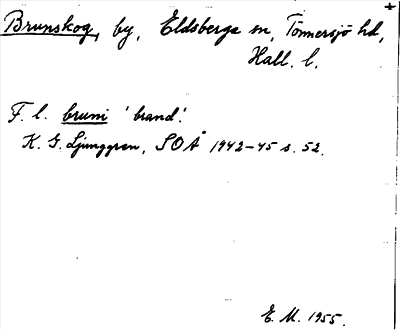 Brunskog, by, Eldsberga sn, Tönnersjö hd,
Hall. l.
F. l. bruni 'brand'.
K. G. Ljunggren, SOÅ 1942-45 s. 52.
E. M. 1955.